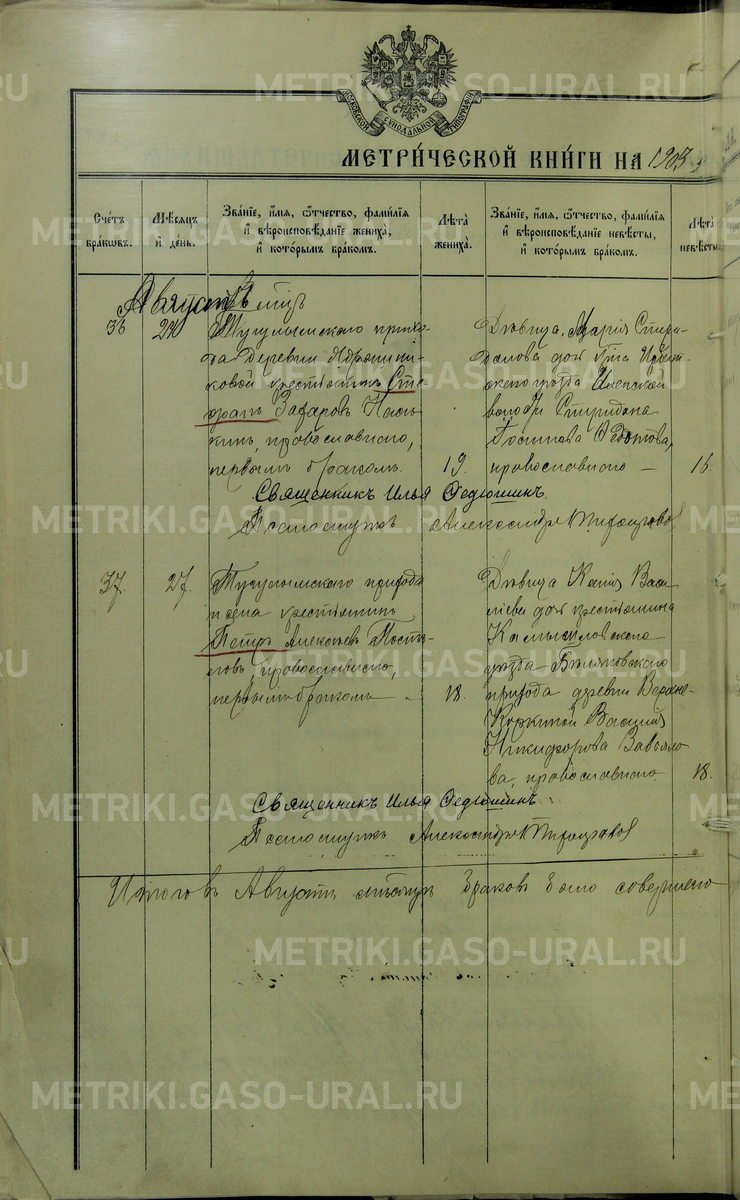 МОСКОВСКОЙ СѴНОДАЛЬНОЙ ТИПОГРАФІИ
МЕТРИ́ЧЕСКОЙ КНИ́ГИ НА 1903
Счетъ бракѡвъ.
Мѣсяцъ и день.
Зва́ніе, и́мя, ѻ҆́тчество, фами́лія и҆ вѣроисповѣ́даніе жениха̀, и҆ кото́рымъ бра́комъ.
Лѣ́та жениха̀.
Зва́ніе, и́мя, ѻ҆́тчество, фами́лія и҆ вѣроисповѣ́даніе невѣ́сты, и҆ кото́рымъ бра́комъ.
Лѣ́та невѣ́сты.
Августъ
36
24
Тугулымскаго прихо-
да деревни
ковой крестьянинъ Сте-
фанъ Захаровъ
православнаго,
первымъ бракомъ.
19.
Дѣвица Марія Спири-
донова доч
скаго уѣзда
волости Спиридона
Федотова,
православнаго
16.
Священникъ Илья Федюшинъ.
Псаломщикъ Александръ
37.
27.
Тугулымскаго прихода
и села крестьянинъ
Петръ Алексѣевъ
православнаго,
первымъ бракомъ
18.
Дѣвица Васи-
лiева доч крестьянина
Камышловскаго
уѣзда Бѣляковскаго
прихода деревни Верхне-
Коркиной Василія
Никифорова Завьяло-
ва, православнаго
18.
Священникъ Илья Федюшинъ.
Псаломщикъ Александръ
Итого въ Августѣ браковъ было совершено
METRIKI.GASO-URAL.RU